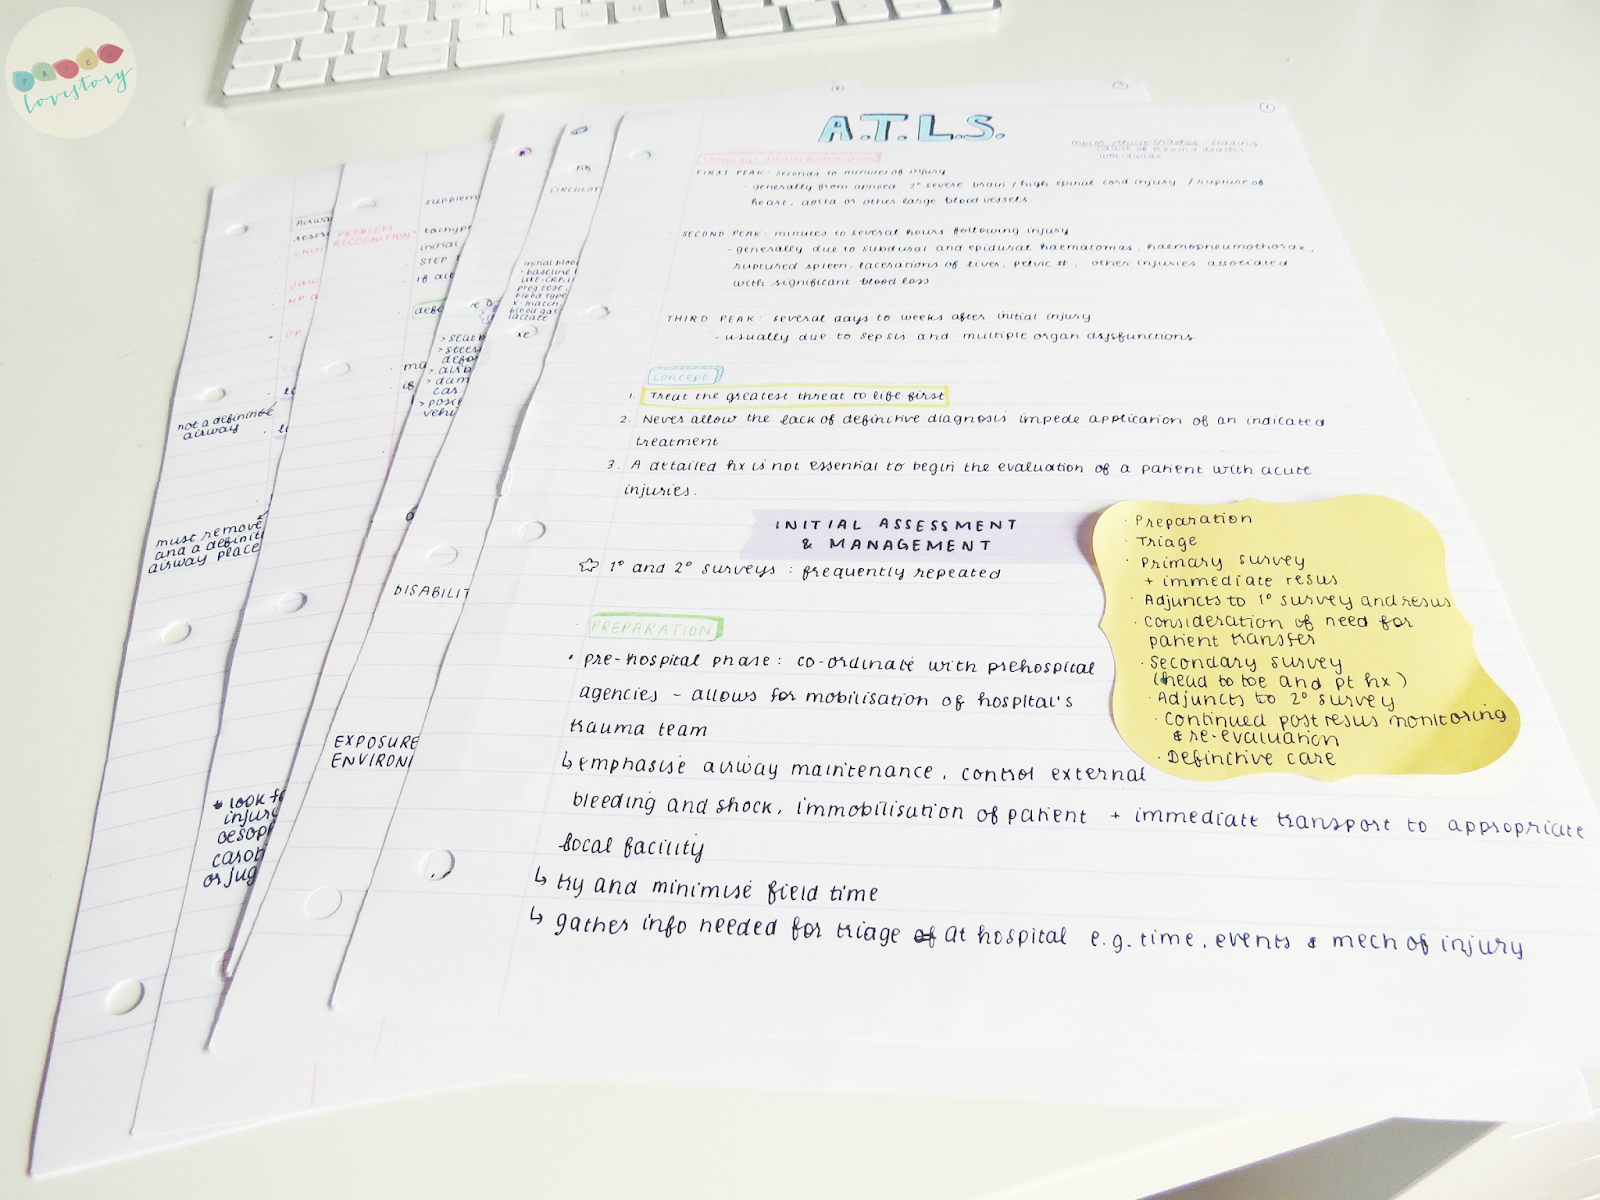 PAPER
lovestory
A.T.L.S.
1
motor vehicle crashes: leading
cause of trauma deaths
worldwide
Trimodal death distribution
FIRST PEAK: seconds to minutes of injury
- generally from apnoea 2° severe brain / high spinal cord injury / rupture of
heart, aorta or other large blood vessels.
SECOND PEAK: minutes to several hours following injury
- generally due to subdural and epidural haematomas, haemopneumothorax,
ruptured spleen, lacerations of liver, pelvic #, other injuries associated
with significant blood loss
THIRD PEAK: several days to weeks after initial injury
- usually due to sepsis and multiple organ dysfunctions
Concept
1. Treat the greatest threat to life first
2. Never allow the lack of definitive diagnosis impede application of an indicated
treatment
3. A detailed hx is not essential to begin the evaluation of a patient with acute
injuries.
INITIAL ASSESSMENT
& MANAGEMENT
☆ 1° and 2° surveys : frequently repeated
· PREPARATION
• pre-hospital phase: co-ordinate with prehospital
agencies - allows for mobilisation of hospital's
trauma team
↳ emphasise airway maintenance, control external
bleeding and shock, immobilisation of patient + immediate transport to appropriate
local facility
↳ try and minimise field time
↳ gather info needed for triage of at hospital e.g. time, events & mech of injury
· Preparation
· Triage
· Primary survey
+ immediate resus
· Adjuncts to 1° survey and resus
· Consideration of need for
patient transfer
· Secondary survey
(head to toe and pt hx)
· Adjuncts to 2° survey
· Continued post resus monitoring
& re-evaluation
· Definitive care
CIRCULAT
initial bloo
- baseline
preg test,
blood type
x-match,
blood gas
lactate
DISABILIT
EXPOSURE
ENVIRON
supplem
PROBLEM
RECOGNITION
· tachyp
initial
STEP
if
defo
> seat b
> steer
defo
> airb
> dam
car
vehi
Airwa
not a definitive
airway
must remove
and a definit
airway place
* look fo
injur
oesop
carot
or jug